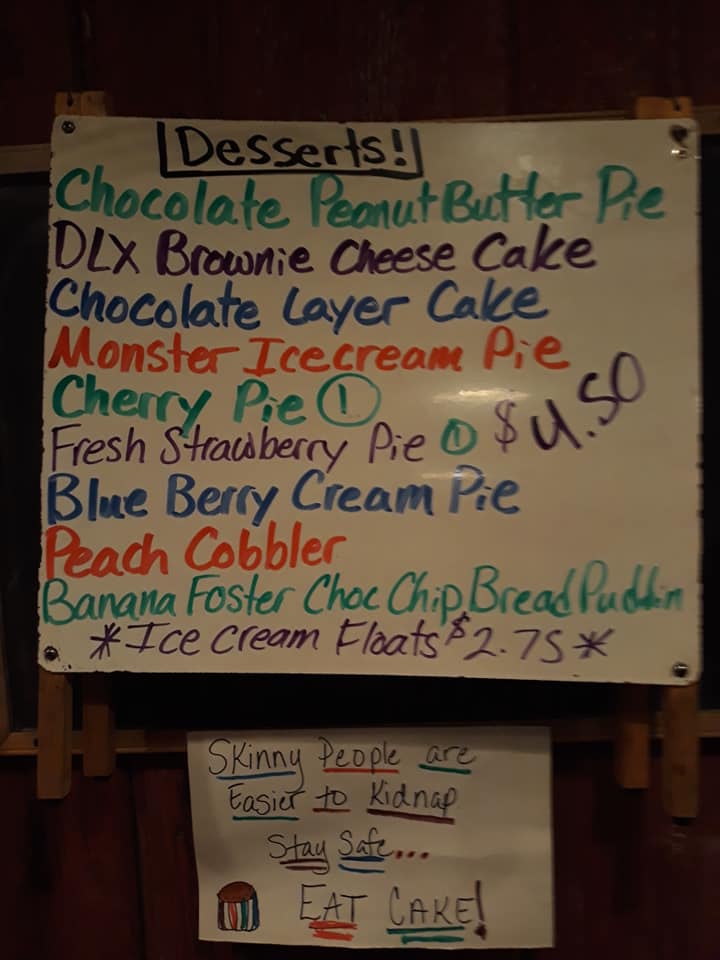 Desserts!
Chocolate Peanut Butter Pie
DLX Brownie Cheese Cake
Chocolate Layer Cake
Monster Icecream Pie
Cherry Pie 1
$4.50
Fresh Strawberry Pie 1
Blue Berry Cream Pie
Peach Cobbler
Banana Foster Choc Chip Bread Puddin
*Ice Cream Floats $2.75*
Skinny People are
Easier to Kidnap
Stay Safe...
EAT CAKE!